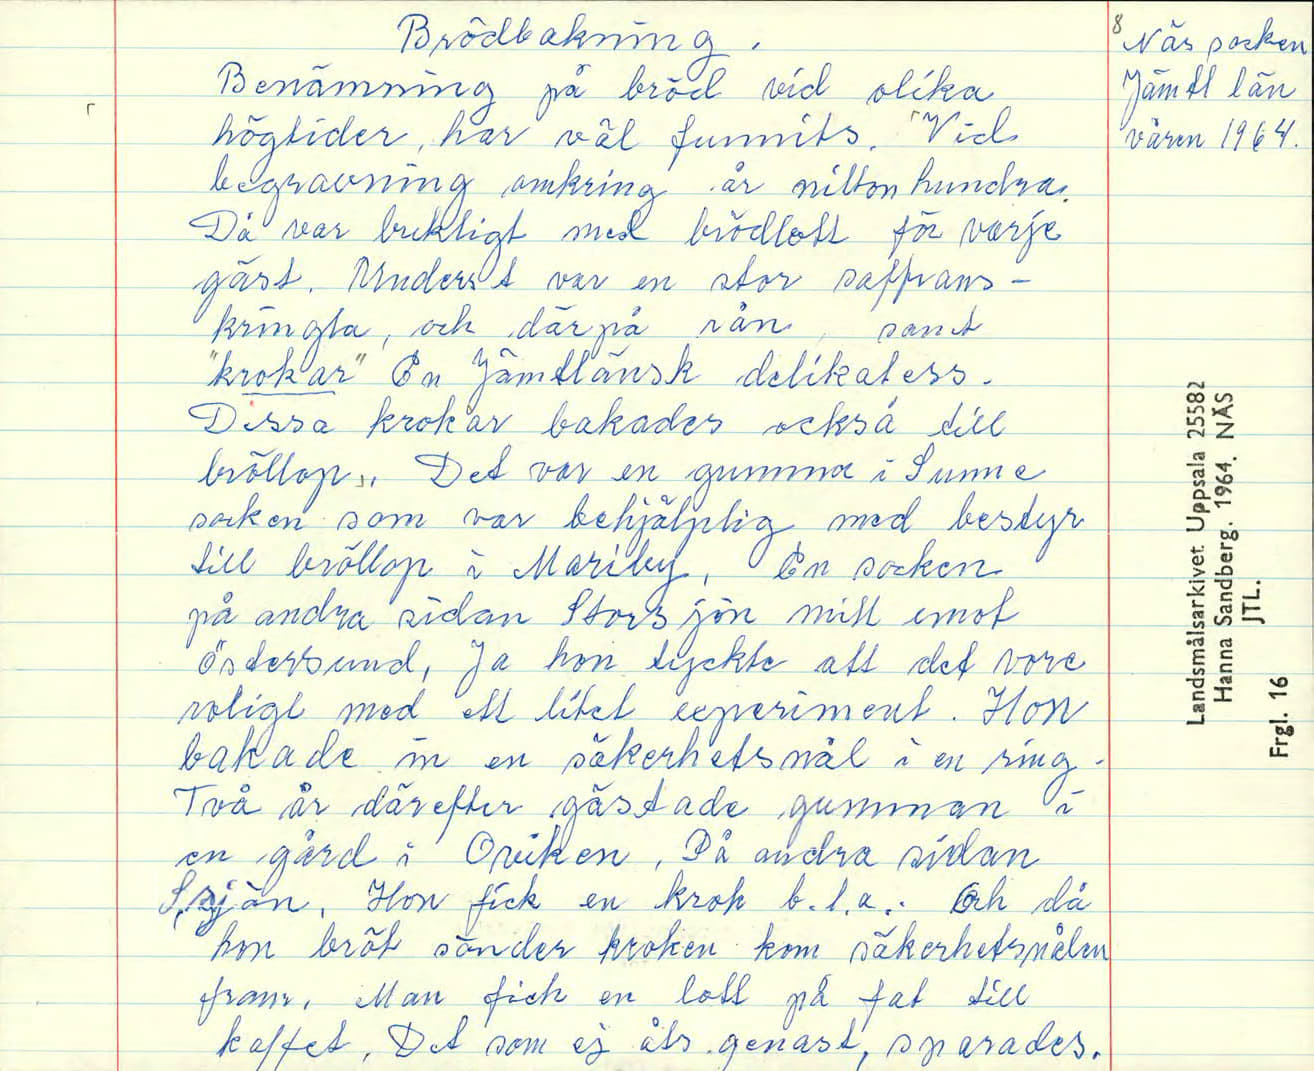 Brödbakning.
Benämning på bröd vid olika
högtider, har väl funnits. Vid
begravning omkring år nitton hundra.
Då var bruktigt med brödlott för varje
gäst. Underst var en stor saffrans-
kringla, och därpå rån, samt
"krokar" En Jämtländsk delikatess.
Dessa krokar bakades också till
bröllop. Det var en gumma i Sunne
socken som var behjälplig med bestyr
till bröllop i Marieby. En socken
på andra sidan Storsjön mitt emot
Östersund, Ja hon tyckte att det vore
roligt med ett litet experiment. Hon
bakade in en säkerhetsnål i en ring.
Två år därefter gästade gumman i
en gård i Oviken, På andra sidan
S,sjön. Hon fick en krok b.l.a.. Och då
hon bröt sönder kroken kom säkerhetsnålen
fram. Man fick en lott på fat till
kaffet. Det som ej åts genast, sparades.
8
Näs socken
Jämtl län
våren 1964.
Landsmålsarkivet Uppsala 25582
Hanna Sandberg. 1964. NÄS
JTL.
Frgl. 16